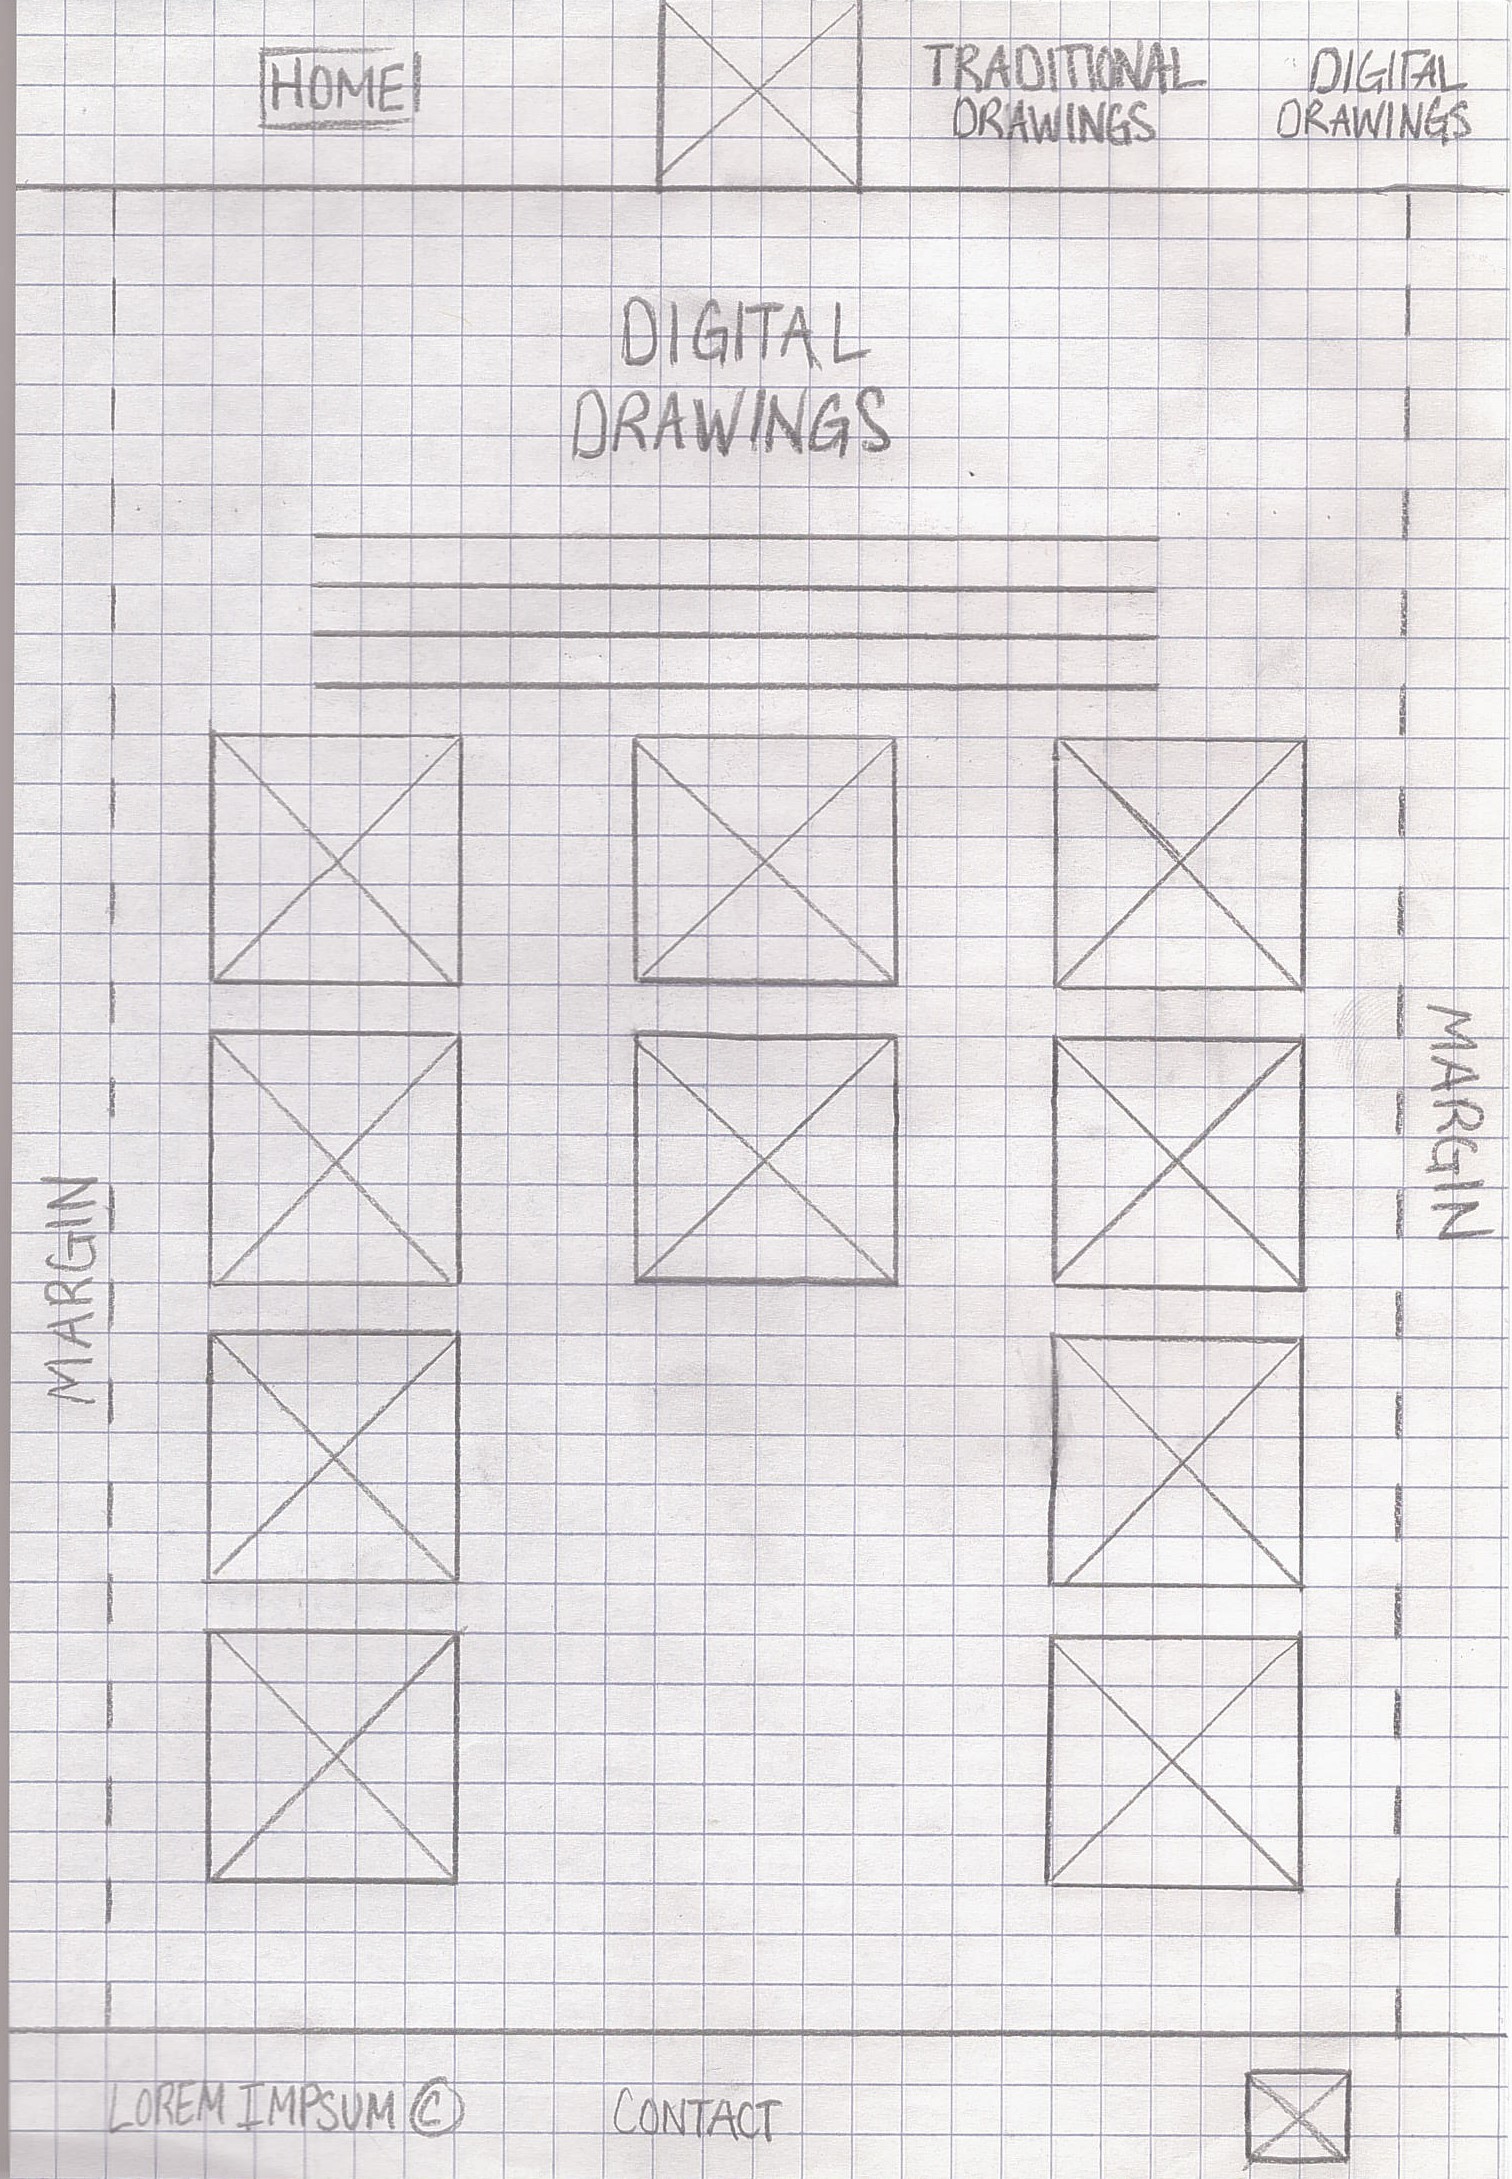 HOME
TRADITIONAL
DRAWINGS
DIGITAL
DRAWINGS
DIGITAL
DRAWINGS
MARGIN
MARGIN
LOREM IMPSUM ©
CONTACT